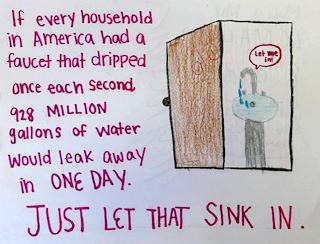 If every household
in America had a
faucet that dripped
once each second,
928 MILLION
gallons of water
would leak away
in ONE DAY.
Let me
in!
JUST LET THAT SINK IN.